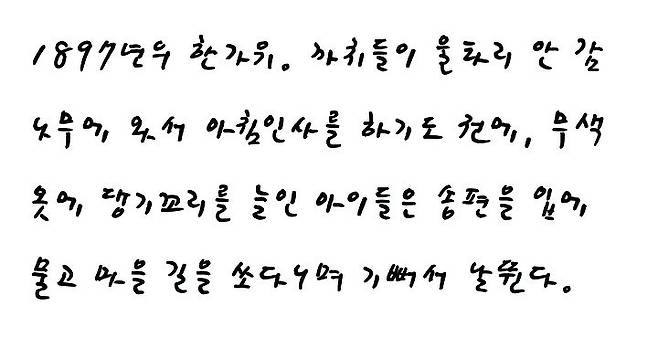 1897년의 한가위. 까치들이 울타리 안 감
나무에 와서 아침인사를 하기도 전에, 무색
옷에 댕기꼬리를 늘인 아이들은 송편을 입에
물고 마을 길을 쏘다니며 기뻐서 날뛴다.